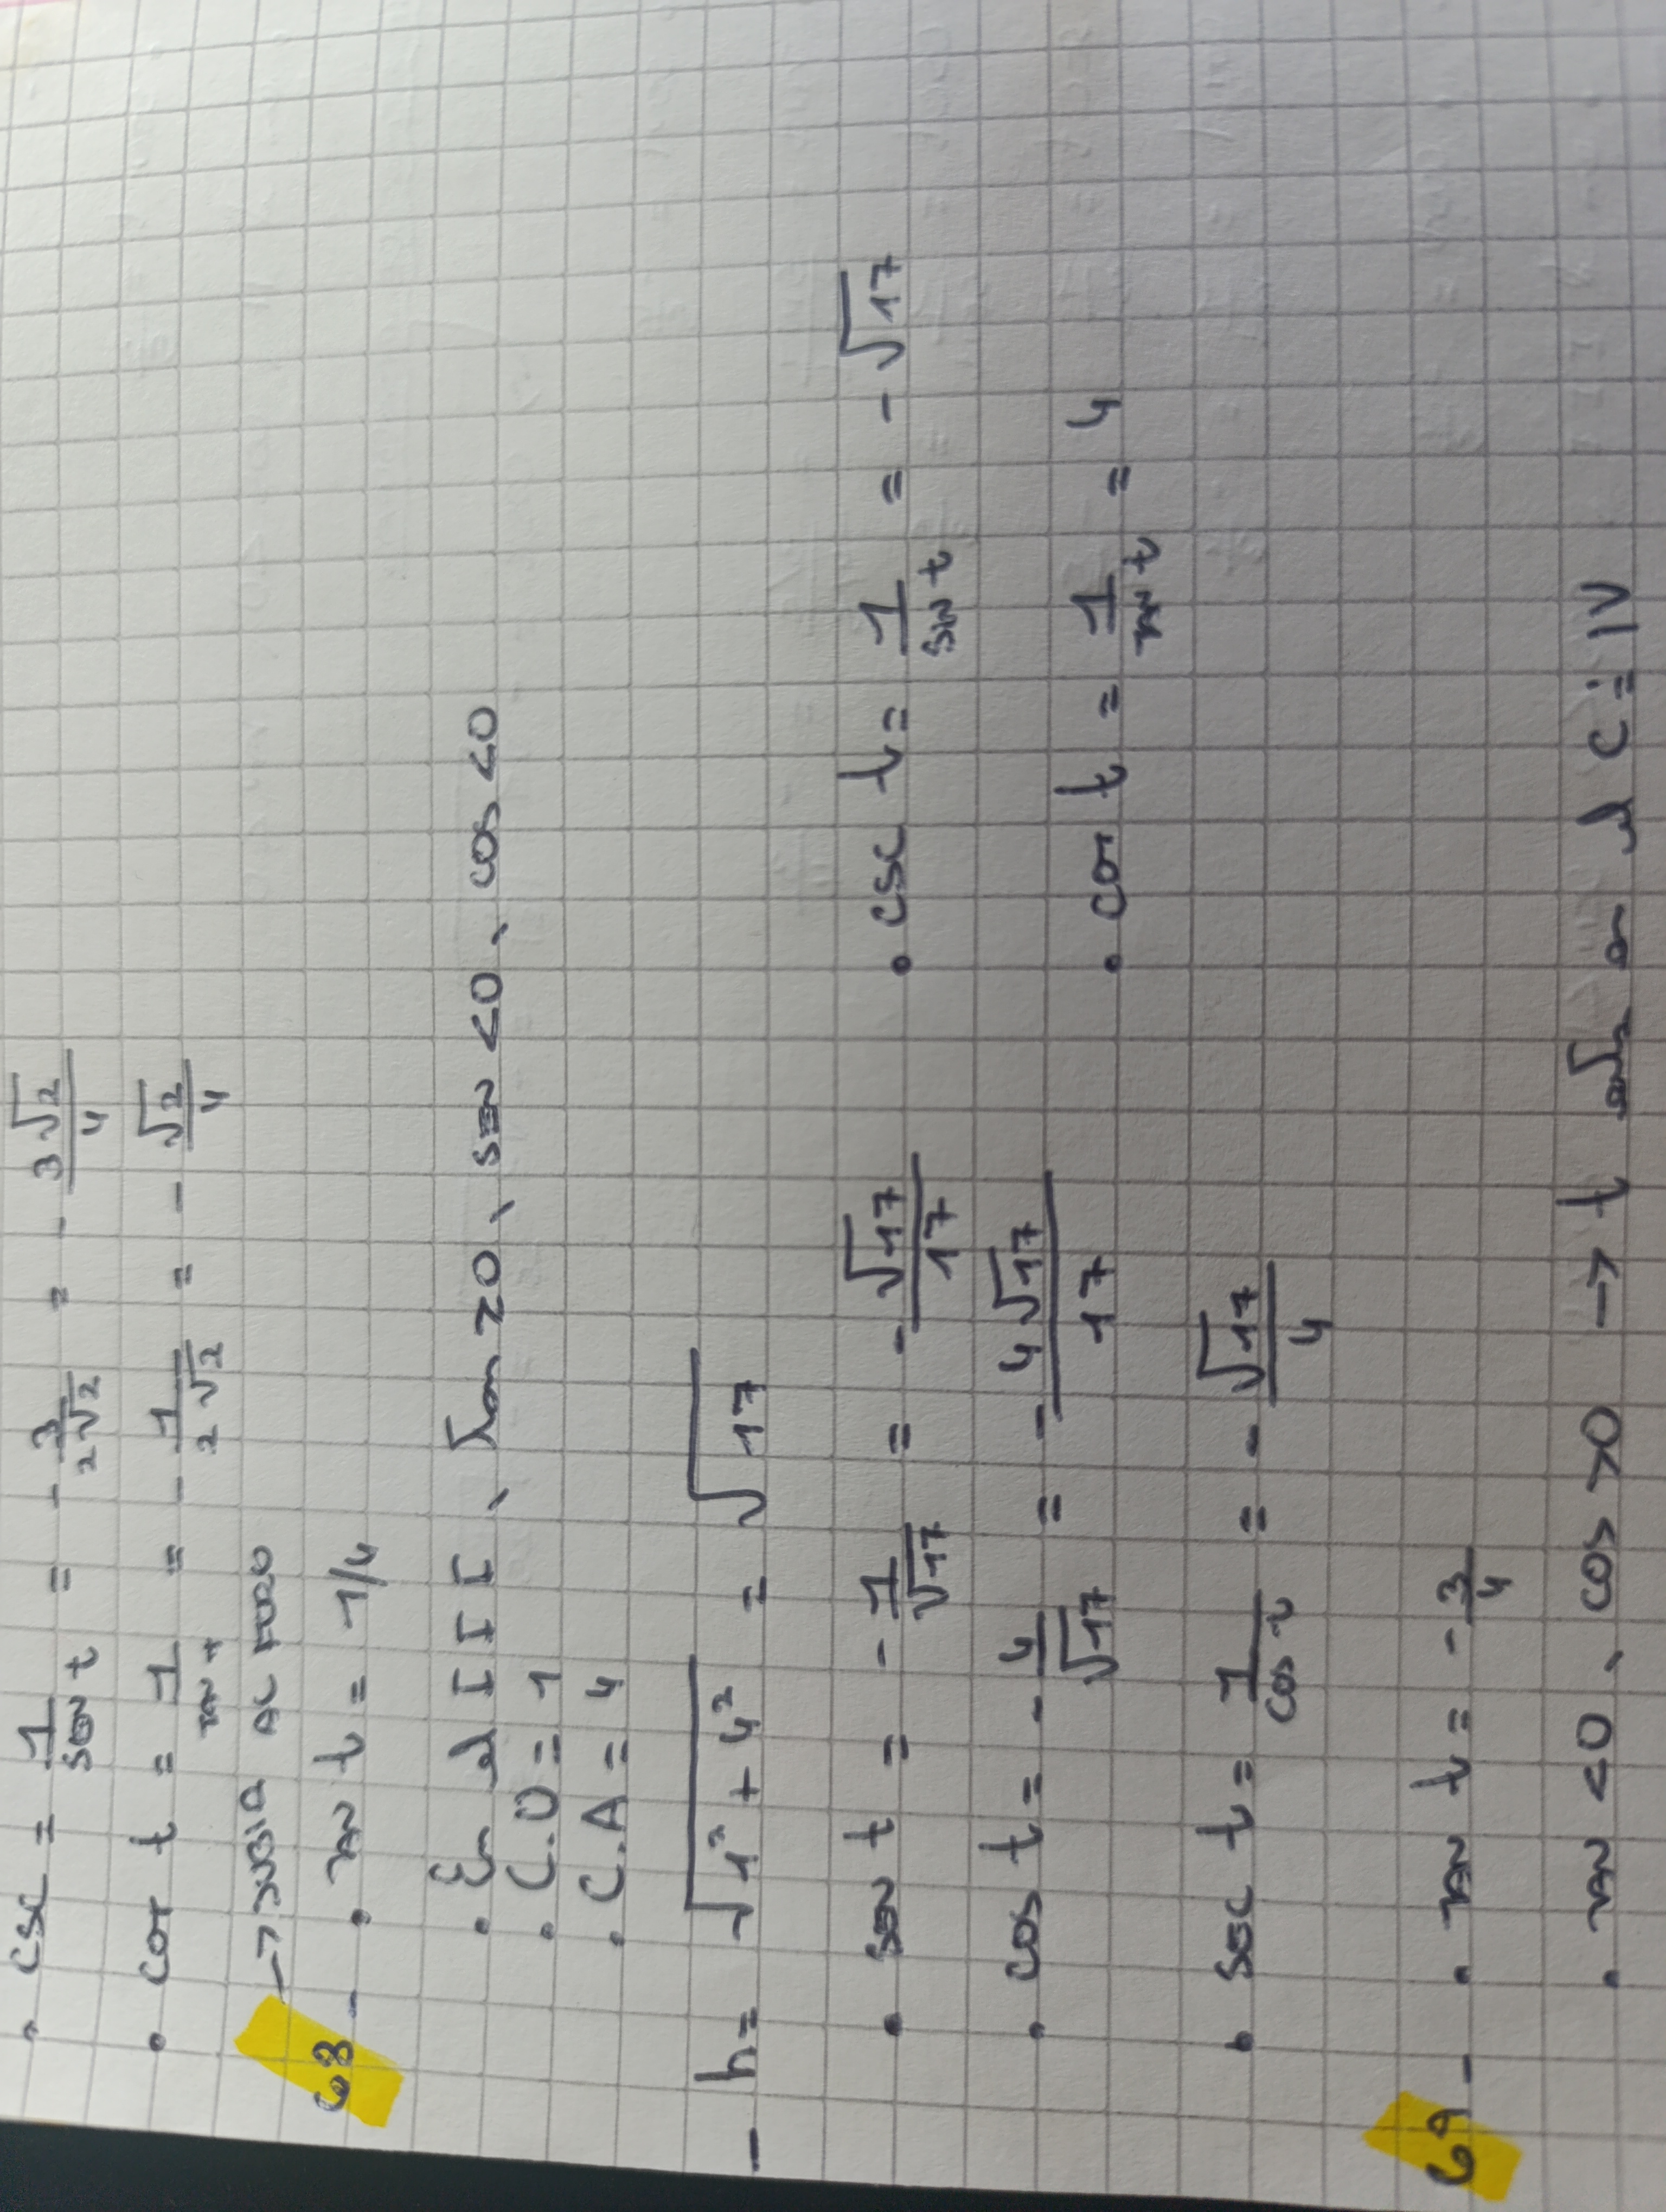 • CSC = 1/SEN t = - 3/2√2 = - 3√2/4
• COT t = 1/TAN t = - 1/2√2 = - √2/4
→ SUBIA AL FORO
68 - • TAN t = 1/4
• En el III, tan >0, SEN <0, COS <0
• C.O = 1
• C.A = 4
- h = √1² + 4² = √17
• SEN t = - 1/√17 = - √17/17 • CSC t = 1/SIN t = - √17
• COS t = - 4/√17 = - 4√17/17 • COT t = 1/TAN t = 4
• SEC t = 1/COS t = - √17/4
69 - • TAN t = - 3/4
• TAN <0, COS >0 → t en el C: IV